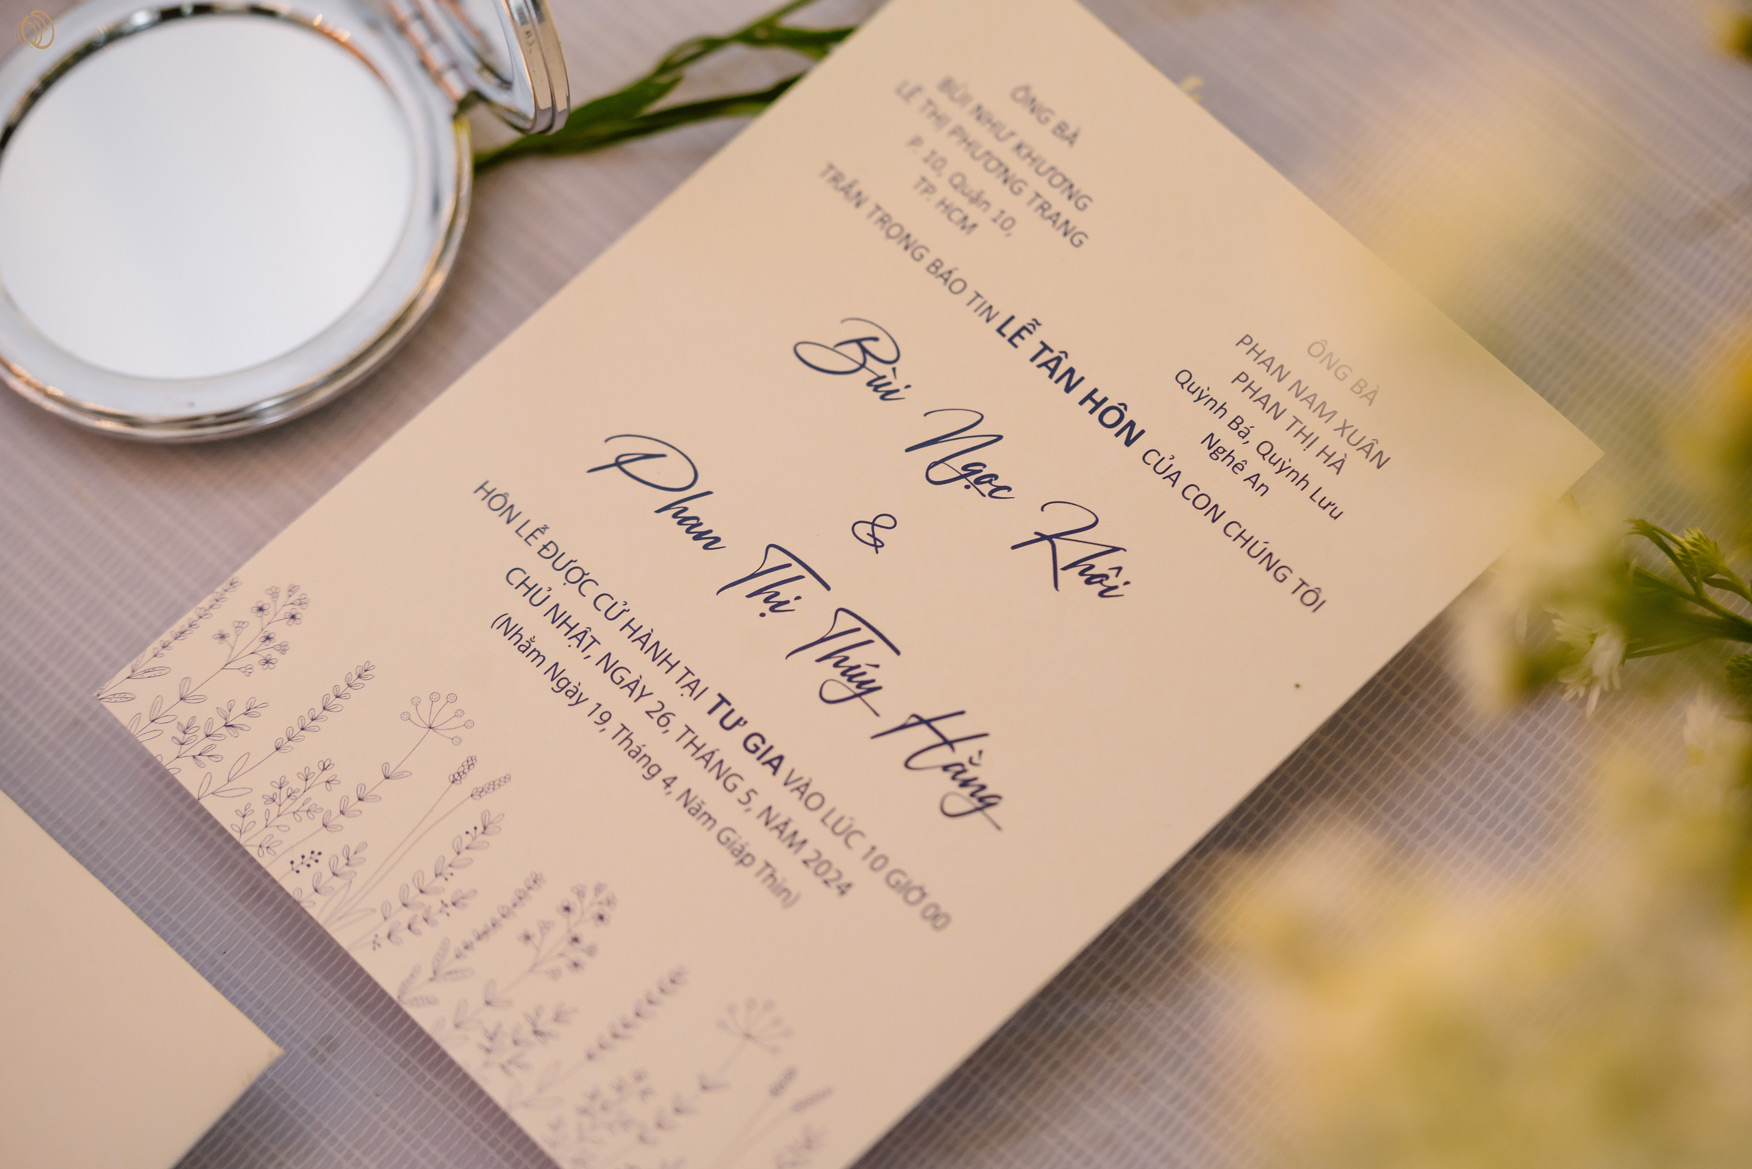 ÔNG BÀ
BÙI NHƯ KHƯƠNG
LÊ THỊ PHƯƠNG TRANG
P. 10, Quận 10,
TP. HCM
ÔNG BÀ
PHAN NAM XUÂN
PHAN THỊ HÀ
Quỳnh Bá, Quỳnh Lưu
Nghê An
TRÂN TRỌNG BÁO TIN LỄ TÂN HÔN CỦA CON CHÚNG TÔI
Bùi Ngọc Khôi
&
Phan Thị Thúy Hằng
HÔN LỄ ĐƯỢC CỬ HÀNH TẠI TƯ GIA VÀO LÚC 10 GIỜ 00
CHỦ NHẬT, NGÀY 26, THÁNG 5, NĂM 2024
(Nhằm Ngày 19, Tháng 4, Năm Giáp Thìn)